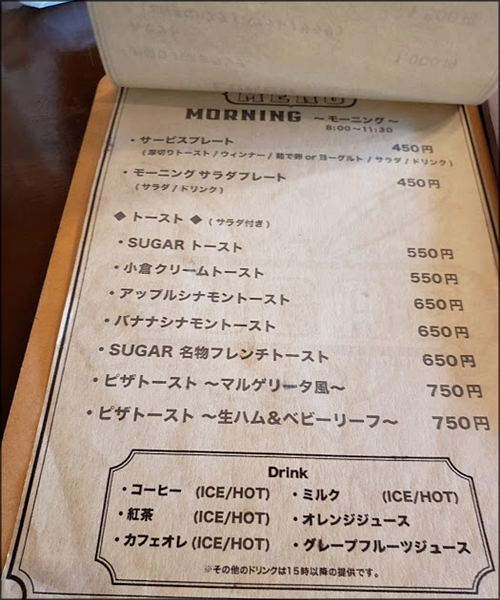 MENU
MORNING ～モーニング～
8:00～11:30
・サービスプレート 450円
(厚切りトースト / ウィンナー / 茹で卵 or ヨーグルト / サラダ / ドリンク)
・モーニング サラダプレート 450円
(サラダ / ドリンク)
◆ トースト ◆ (サラダ付き)
・SUGAR トースト 550円
・小倉クリームトースト 550円
・アップルシナモントースト 650円
・バナナシナモントースト 650円
・SUGAR 名物フレンチトースト 650円
・ピザトースト ～マルゲリータ風～ 750円
・ピザトースト ～生ハム&ベビーリーフ～ 750円
Drink
・コーヒー (ICE/HOT) ・ミルク (ICE/HOT)
・紅茶 (ICE/HOT) ・オレンジジュース
・カフェオレ (ICE/HOT) ・グレープフルーツジュース
※その他のドリンクは15時以降の提供です。